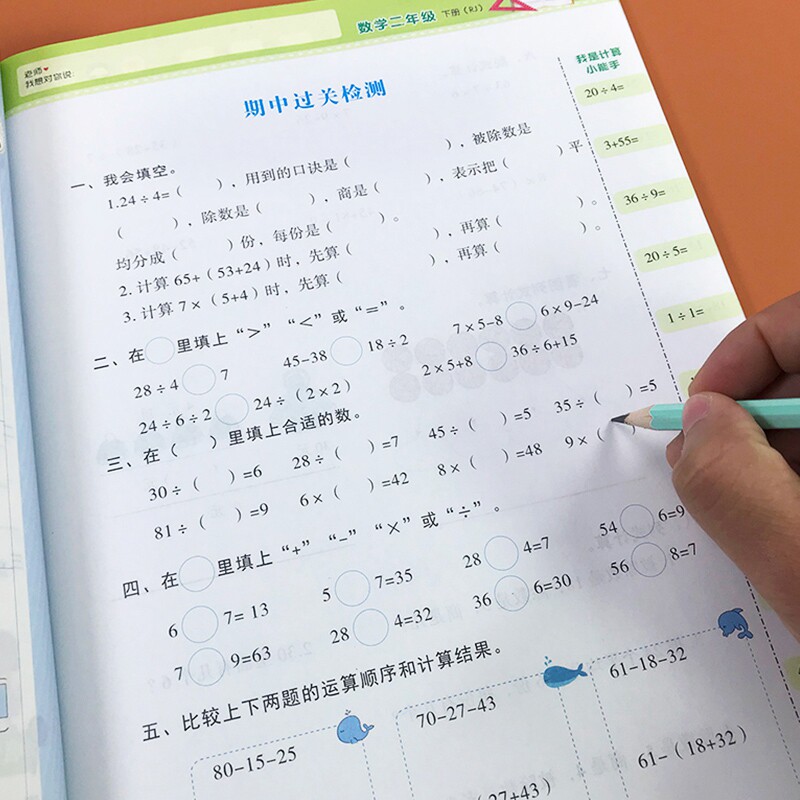 数学二年级 下册（RJ）
老师❤
我想对你说:
期中过关检测
一、我会填空。
1.24÷4=（ ），用到的口诀是（ ），被除数是
（ ），除数是（ ），商是（ ），表示把（ ）平
均分成（ ）份，每份是（ ）。
2.计算65+（53+24）时，先算（ ），再算（ ）。
3.计算7×（5+4）时，先算（ ），再算（ ）。
二、在○里填上“>”“<”或“=”。
28÷4○7 45-38○18÷2 7×5-8○6×9-24
24÷6÷2○24÷（2×2） 2×5+8○36÷6+15
三、在（ ）里填上合适的数。
30÷（ ）=6 28÷（ ）=7 45÷（ ）=5 35÷（ ）=5
81÷（ ）=9 6×（ ）=42 8×（ ）=48 9×（
四、在○里填上“+”“-”“×”或“÷”。
6○7=13 5○7=35 28○4=7 54○6=9
7○9=63 28○4=32 36○6=30 56○8=7
五、比较上下两题的运算顺序和计算结果。
80-15-25 70-27-43 61-18-32
（27+43） 61-（18+32）
我是计算
小能手
20÷4=
3+55=
36÷9=
20÷5=
1÷1=